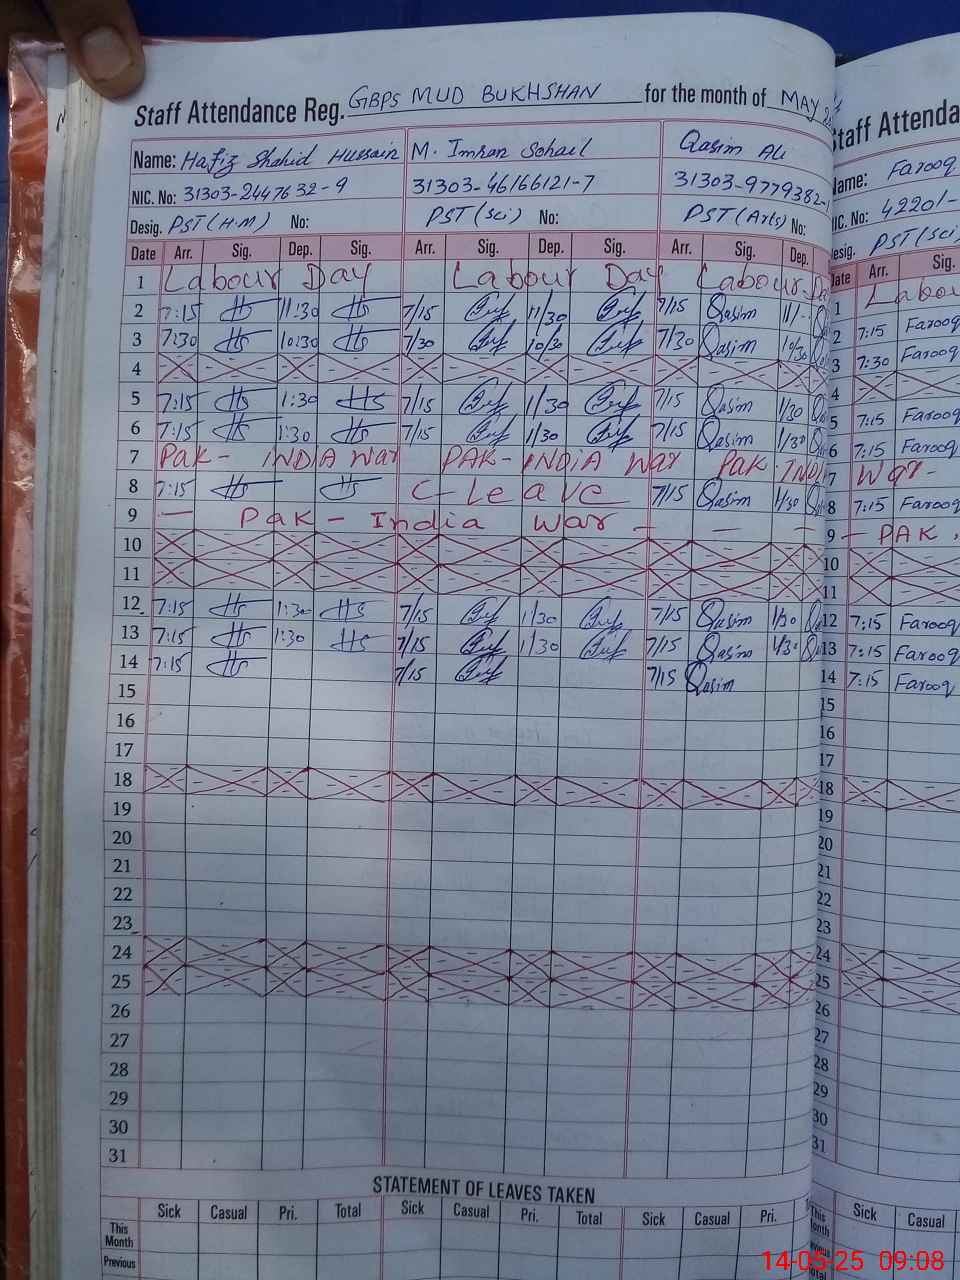 Staff Attendance Reg. GBPS MUD BUKHSHAN for the month of MAY
Name: Hafiz Shahid Hussain M. Imran Sohail Qasim Ali
NIC. No: 31303-2447632-9 31303-46166121-7 31303-9779382-
Desig. PST (H.M) No: PST (Sci) No: PST (Arts) No:
Date Arr. Sig. Dep. Sig. Arr. Sig. Dep. Sig. Arr. Sig. Dep.
1 Labour Day Labour Day Labour Da
2 7:15 Hs 11:30 Hs 7/15 11/30 7/15 Qasim 11/--
3 7:30 Hs 10:30 Hs 7/30 10/30 7/30 Qasim 10/30
4
5 7:15 Hs 1:30 Hs 7/15 1/30 7/15 Qasim 1/30
6 7:15 Hs 1:30 Hs 7/15 1/30 7/15 Qasim 1/30
7 Pak - INDIA War PAK - INDIA War Pak - INDI
8 7:15 Hs Hs C- Leave 7/15 Qasim 1/30
9 — Pak - India War - — —
10
11
12 7:15 Hs 1:30 Hs 7/15 1/30 7/15 Qasim 1/30
13 7:15 Hs 1:30 Hs 7/15 1/30 7/15 Qasim 1/30
14 7:15 Hs 7/15 7/15 Qasim
15
16
17
18
19
20
21
22
23
24
25
26
27
28
29
30
31
STATEMENT OF LEAVES TAKEN
Sick Casual Pri. Total Sick Casual Pri. Total Sick Casual Pri.
This Month
Previous
Staff Attenda
Name: Farooq
NIC. No: 42201-
Desig. PST (Sci)
Date Arr. Sig.
1 Labou
2 7:15 Farooq
3 7:30 Farooq
4
5 7:15 Farooq
6 7:15 Farooq
7 War -
8 7:15 Farooq
9 — PAK
10
11
12 7:15 Farooq
13 7:15 Farooq
14 7:15 Farooq
15
16
17
18
19
20
21
22
23
24
25
26
27
28
29
30
31
Sick Casual
This Month
Previous
Total
14-05-25 09:08